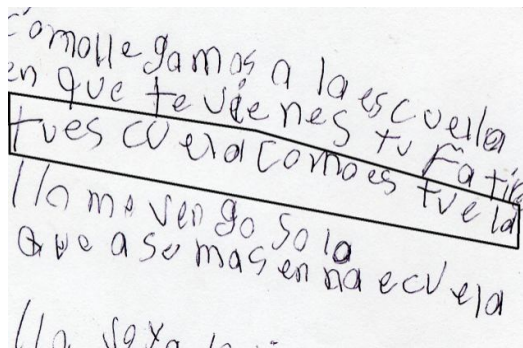 comollegamos a laescuela
en que tevienes tu Fatir
tuescuela comoes tuela
llo me vengo sola
que asemas en na ecuela
llo